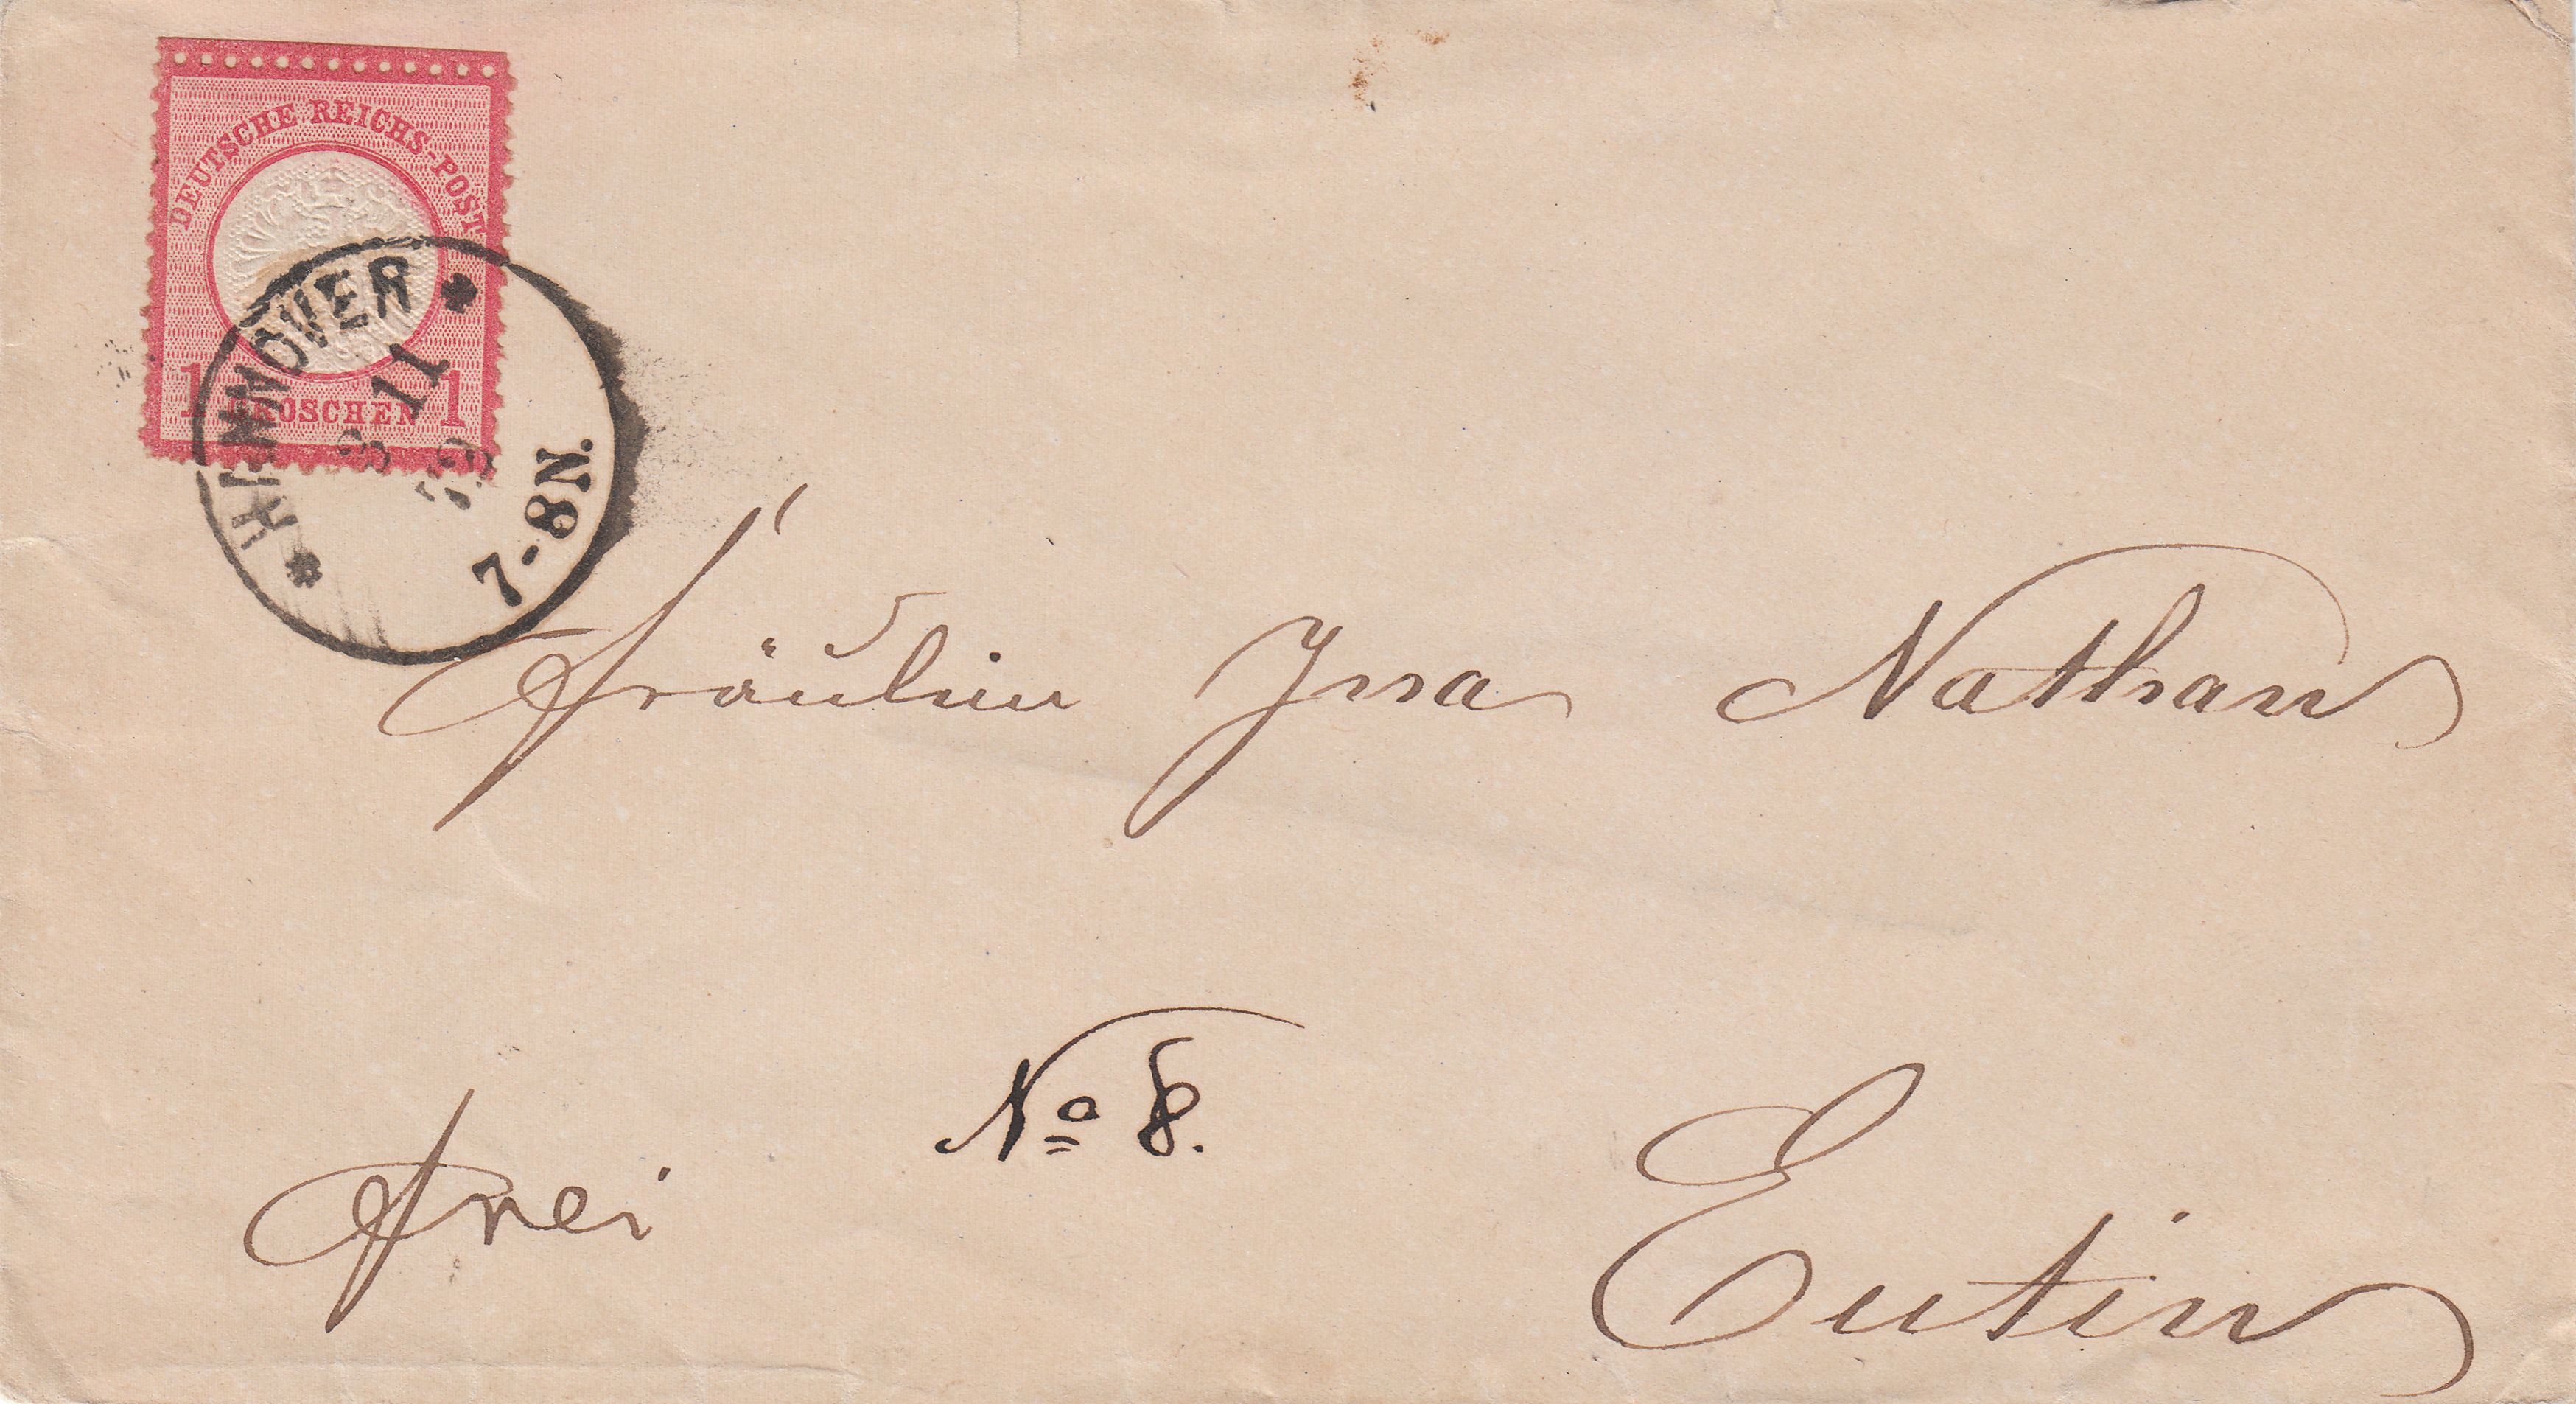 DEUTSCHE REICHS-POST
1 GROSCHEN 1
HANNOVER
11
7-8N.
Fräulein Ina Nathan
No 8.
frei
Eutin